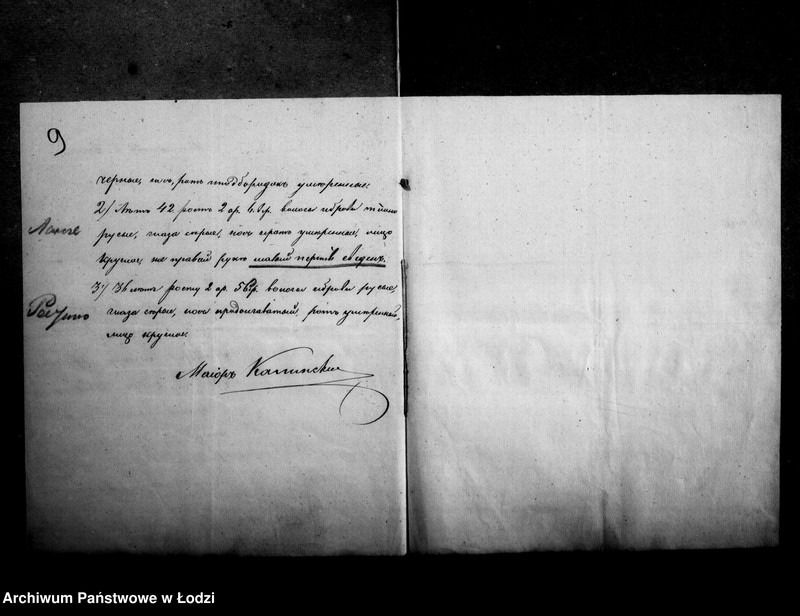 9
черные, носъ, ротъ и подбородокъ умѣренные:
2) Лѣтъ 42 ростъ 2 ар. 4 вер. волоса и брови темно
русые, глаза сѣрые, носъ и ротъ умѣренные, лицо
круглое, на правой руке малый перстъ сведенъ.
3) 36 лѣтъ росту 2 ар. 5 вер. волоса и брови русые,
глаза сѣрые, носъ продолговатый, ротъ умѣренный,
лицо круглое.
Маіоръ Калинскій
Archiwum Państwowe w Łodzi